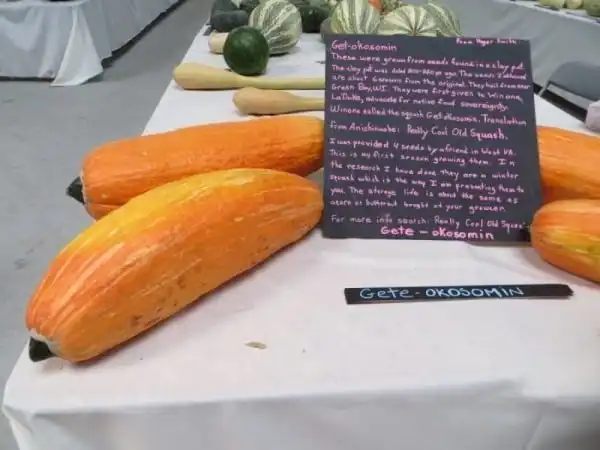 Gete-okosomin From Roger Smith
These were grown from seeds found in a clay pot.
The clay pot was dated 800 years ago. The seeds I obtained
are about 6 seasons from the original. They hail from near
Green Bay, WI. They were first given to Winona
LaDuke, advocate for native food sovereignty.
Winona called the squash Gete-okosomin. Translation
from Anishinabe: Really Cool Old Squash.
I was provided 4 seeds by a friend in West VA.
This is my first season growing them. In
the research I have done they are a winter
squash which is the way I am presenting them to
you. The storage life is about the same as
acorn or butternut bought at your grocer.
For more info search: Really Cool Old Squash
Gete-okosomin
Gete-OKOSOMIN